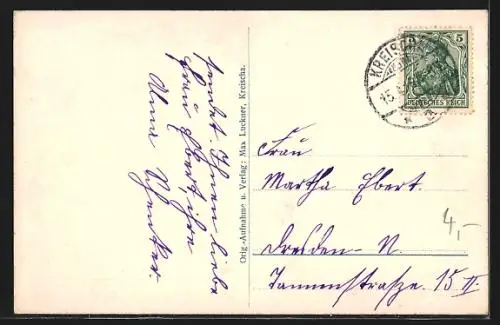 sendet Ihnen liebe
Frau Ebert, ihre
Alma
Orig.-Aufnahme u. Verlag: Max Luckner, Kreischa.
KREISCHA
15.
5
DEUTSCHES REICH
Frau
Martha Ebert.
Dresden-N.
Tannenstraße 15 II.
4,-